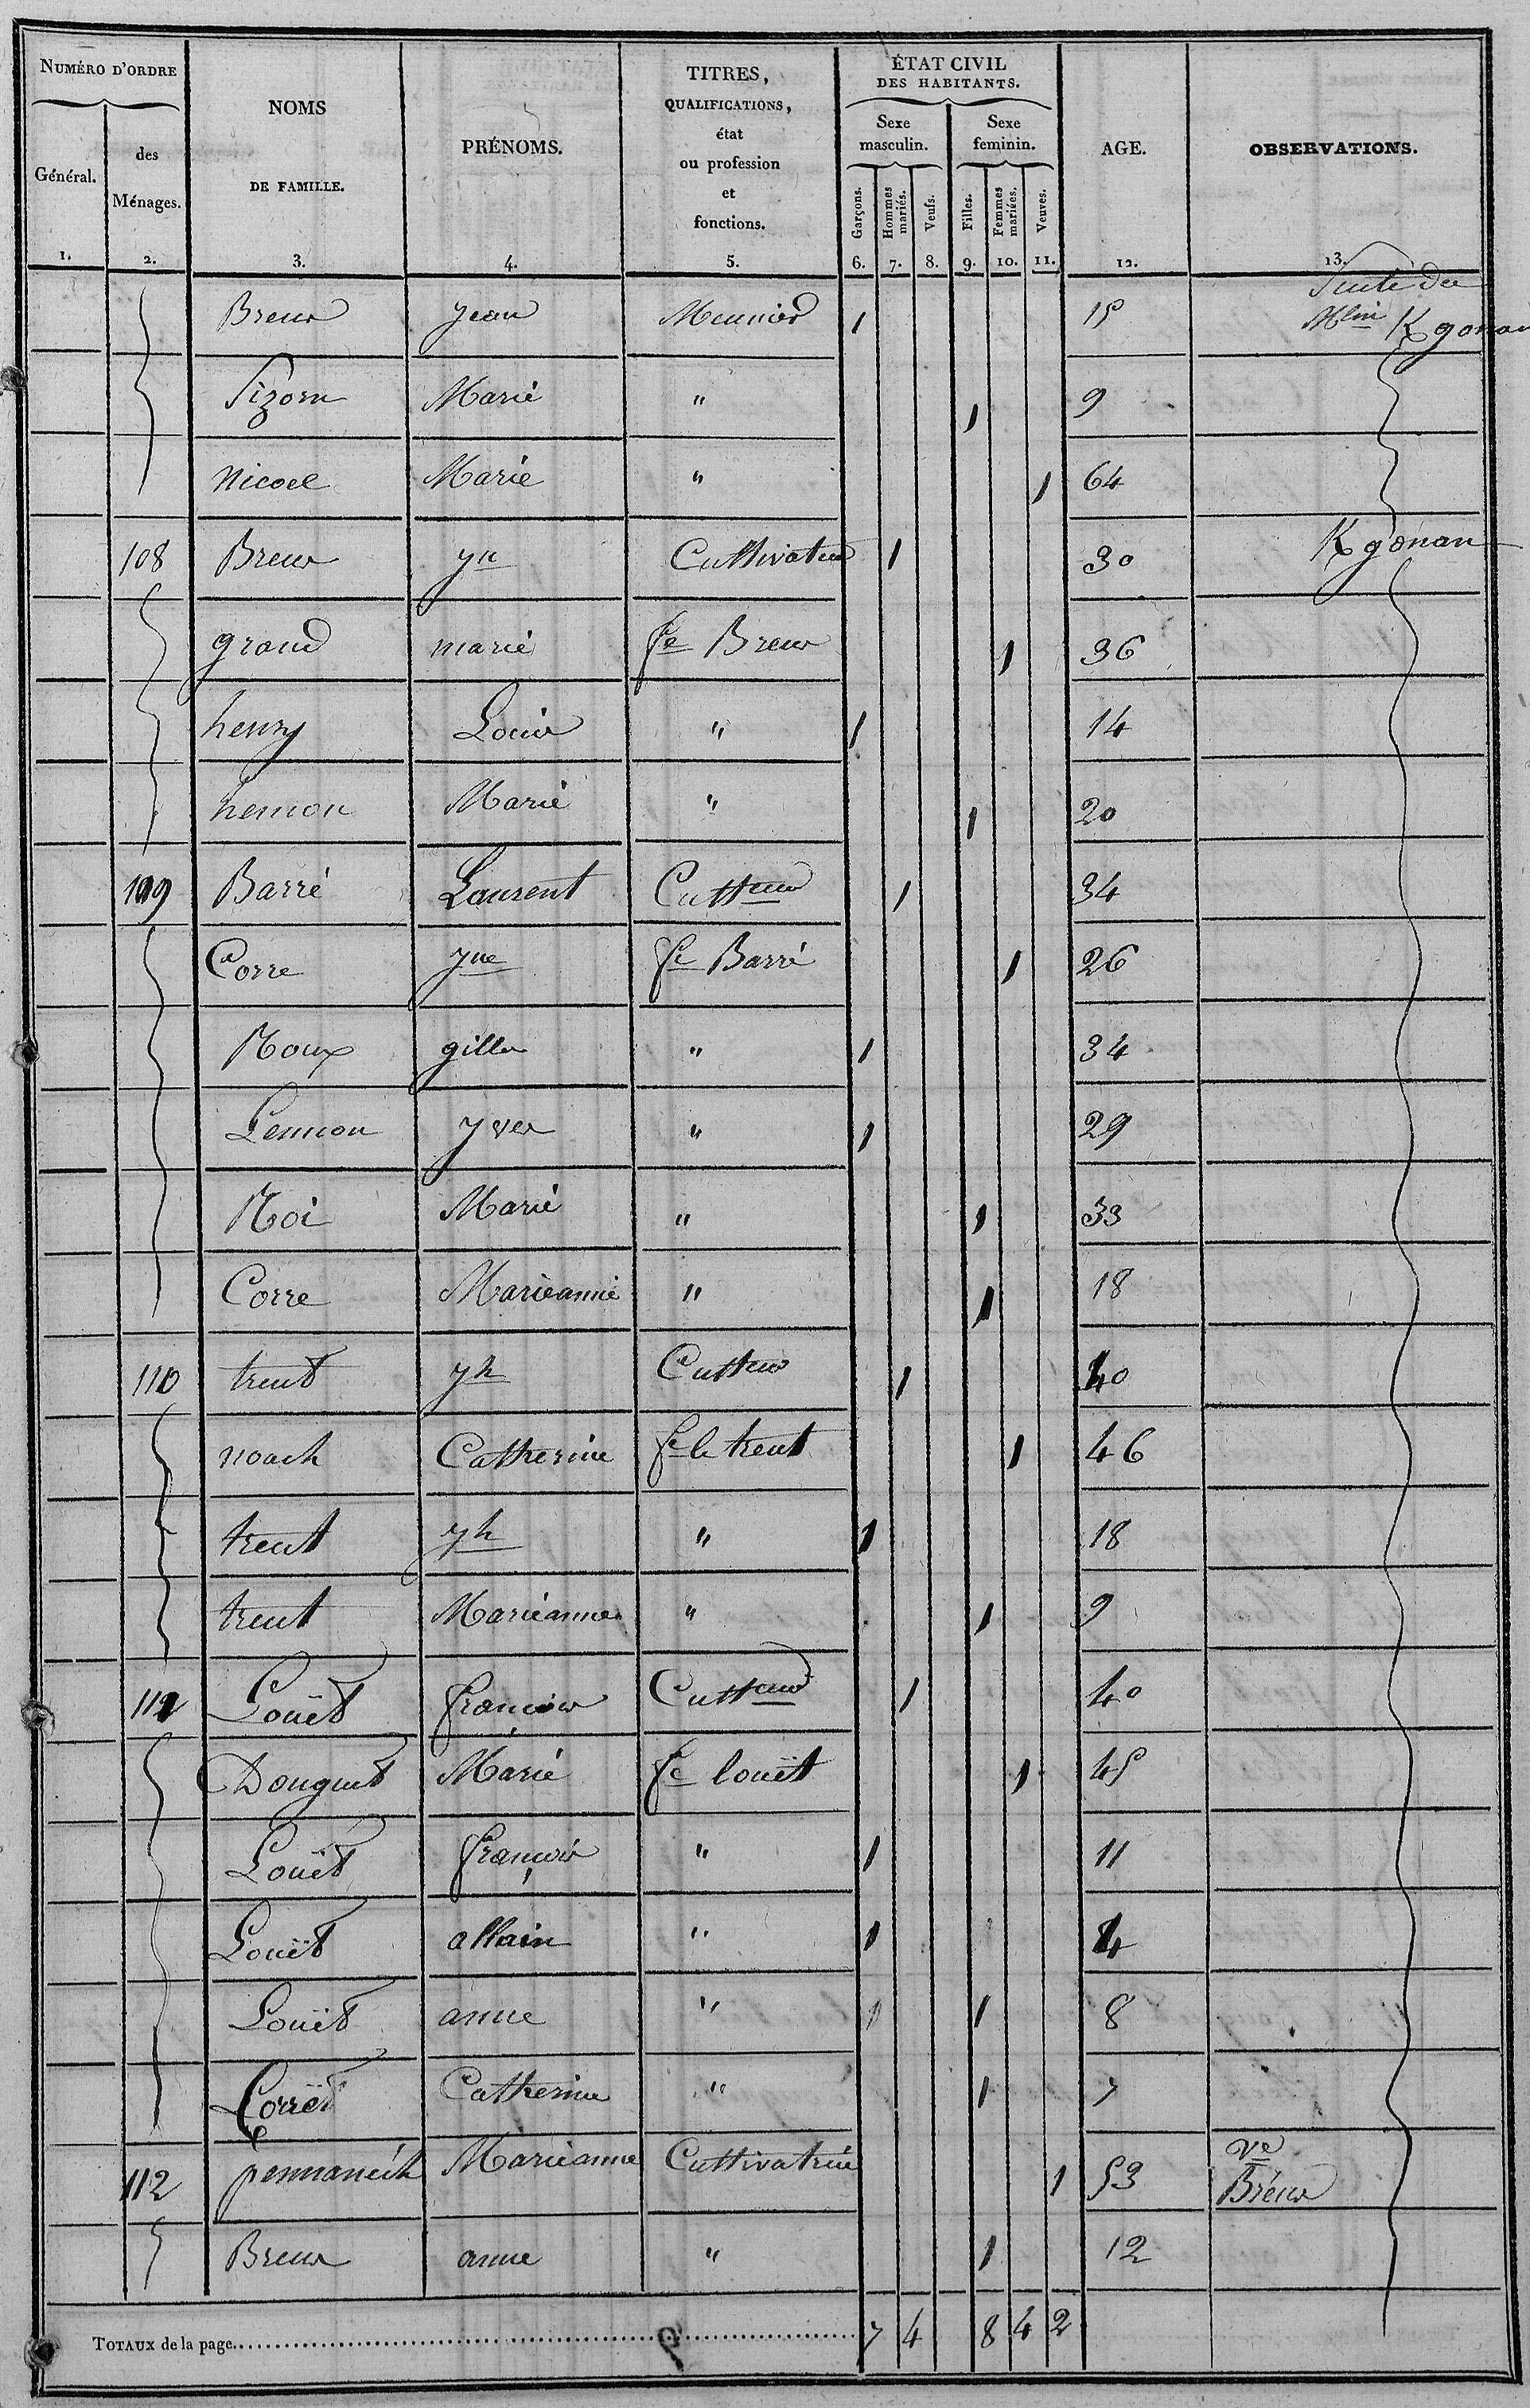 NUMÉRO D'ORDRE
Général.
des
Ménages.
NOMS
DE FAMILLE.
PRÉNOMS.
TITRES,
QUALIFICATIONS,
état
ou profession
et
fonctions.
ÉTAT CIVIL
DES HABITANTS.
Sexe
masculin.
Sexe
feminin.
Garçons.
Hommes
mariés.
Veufs.
Filles.
Femmes
mariées.
Veuves.
AGE.
OBSERVATIONS.
1. 2. 3. 4. 5. 6. 7. 8. 9. 10. 11. 12. 13.
Suite du
Mlin K gonan
Breur Jean Meunier 1 15
Sizorn Marie " 1 9
Nicoel Marie " 1 64
108 Breur yn Cultivateur 1 30 K gonan
grand marie fe Breur 1 36
henry Louis " 1 14
hemon Marie " 1 20
109 Barré Laurent Cultteur 1 34
Corre yne fe Barré 1 26
Roux gilles " 1 34
Lennon yves " 1 29
Roi Marie " 1 33
Corre Marieanne " 1 18
110 treut yh Cultteur 1 40
noach Catherine fe le treut 1 46
treut yh " 1 18
treut Marieanne " 1 9
111 Louët françois Cultteur 1 40
Douguet Marie fe louët 1 45
Louët françois " 1 11
Louët allain " 1 4
Louët anne " 1 8
Catherine " 1 7
112 pennanech Marieanne Cultivatrice 1 53 ve
Bréur
Breur anne " 1 12
TOTAUX de la page 7 4 8 4 2